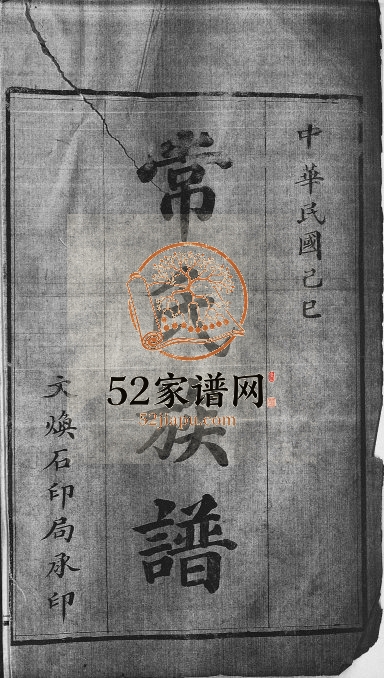 中華民國己巳
常氏族譜
文煥石印局承印
52家谱网
52jiapu.com